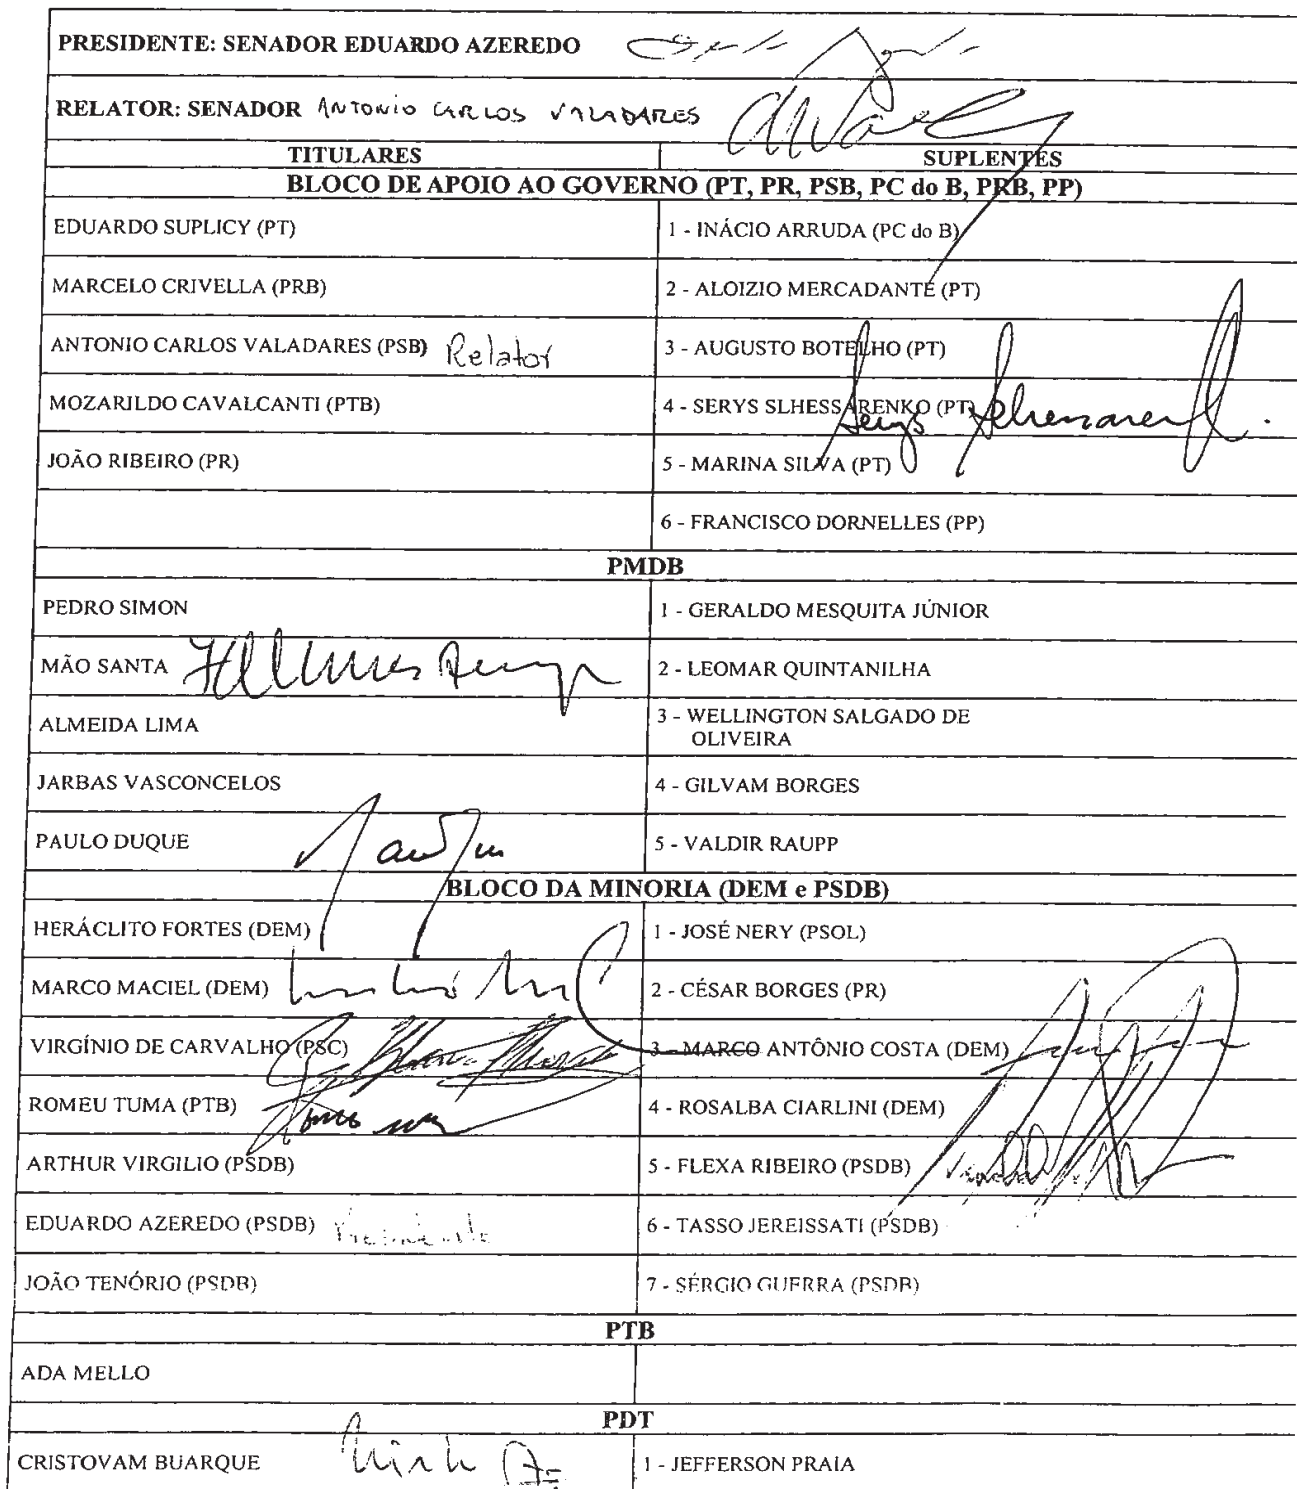 PRESIDENTE: SENADOR EDUARDO AZEREDO
RELATOR: SENADOR ANTONIO CARLOS VALADARES
TITULARES SUPLENTES
BLOCO DE APOIO AO GOVERNO (PT, PR, PSB, PC do B, PRB, PP)
EDUARDO SUPLICY (PT) 1 - INÁCIO ARRUDA (PC do B)
MARCELO CRIVELLA (PRB) 2 - ALOIZIO MERCADANTE (PT)
ANTONIO CARLOS VALADARES (PSB) Relator 3 - AUGUSTO BOTELHO (PT)
MOZARILDO CAVALCANTI (PTB) 4 - SERYS SLHESSARENKO (PT)
JOÃO RIBEIRO (PR) 5 - MARINA SILVA (PT)
6 - FRANCISCO DORNELLES (PP)
PMDB
PEDRO SIMON 1 - GERALDO MESQUITA JÚNIOR
MÃO SANTA 2 - LEOMAR QUINTANILHA
ALMEIDA LIMA 3 - WELLINGTON SALGADO DE
OLIVEIRA
JARBAS VASCONCELOS 4 - GILVAM BORGES
PAULO DUQUE 5 - VALDIR RAUPP
BLOCO DA MINORIA (DEM e PSDB)
HERÁCLITO FORTES (DEM) 1 - JOSÉ NERY (PSOL)
MARCO MACIEL (DEM) 2 - CÉSAR BORGES (PR)
VIRGÍNIO DE CARVALHO (PSC) 3 - MARCO ANTÔNIO COSTA (DEM)
ROMEU TUMA (PTB) 4 - ROSALBA CIARLINI (DEM)
ARTHUR VIRGILIO (PSDB) 5 - FLEXA RIBEIRO (PSDB)
EDUARDO AZEREDO (PSDB) Presidente 6 - TASSO JEREISSATI (PSDB)
JOÃO TENÓRIO (PSDB) 7 - SÉRGIO GUERRA (PSDB)
PTB
ADA MELLO
PDT
CRISTOVAM BUARQUE 1 - JEFFERSON PRAIA